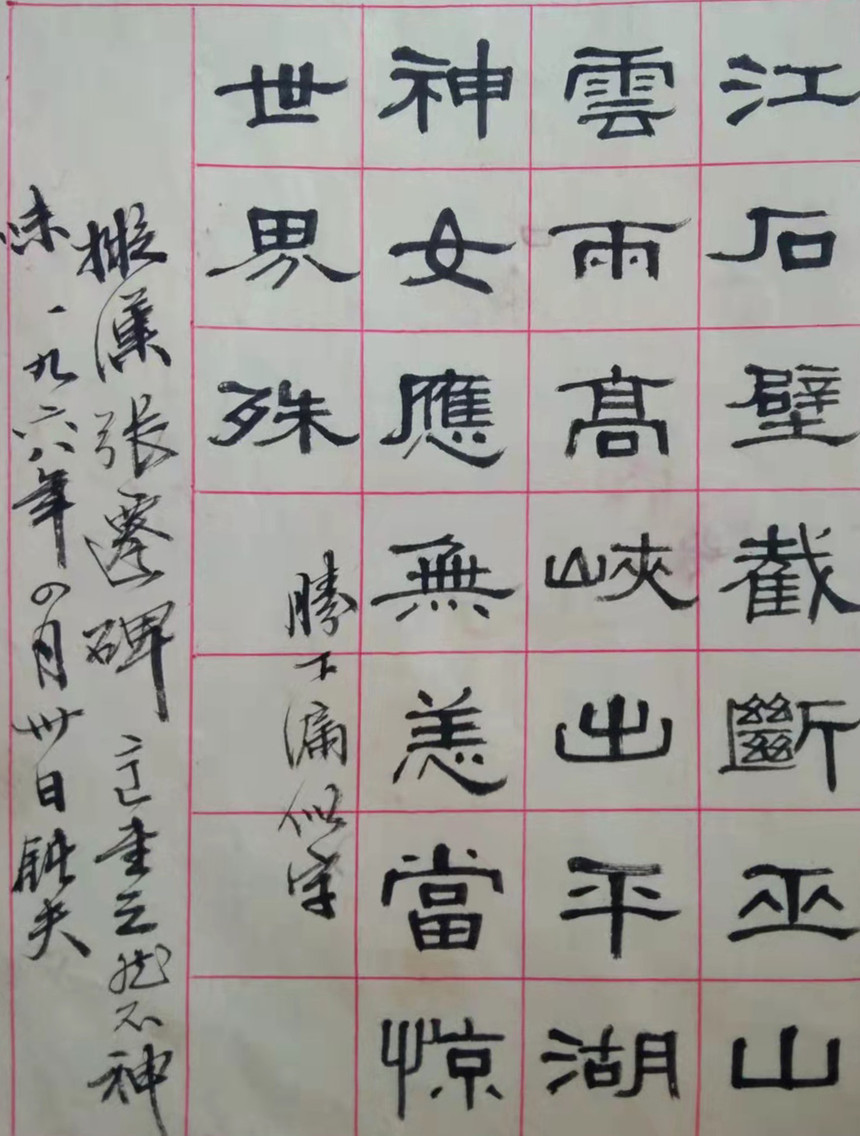 江石壁截斷巫山
雲雨高峽出平湖
神女應無恙當惊
世界殊
勝下漏似字
擬漢張遷碑 意不神
味 一九六年四月卅日 夫